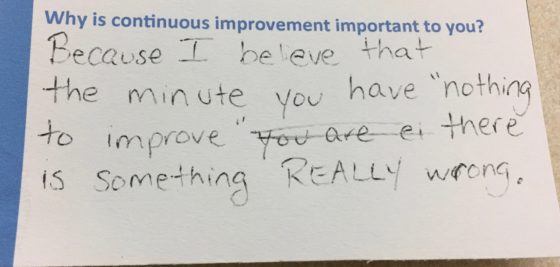 Why is continuous improvement important to you?
Because I beleve that
the minute you have "nothing
to improve" you are ei there
is something REALLY wrong.